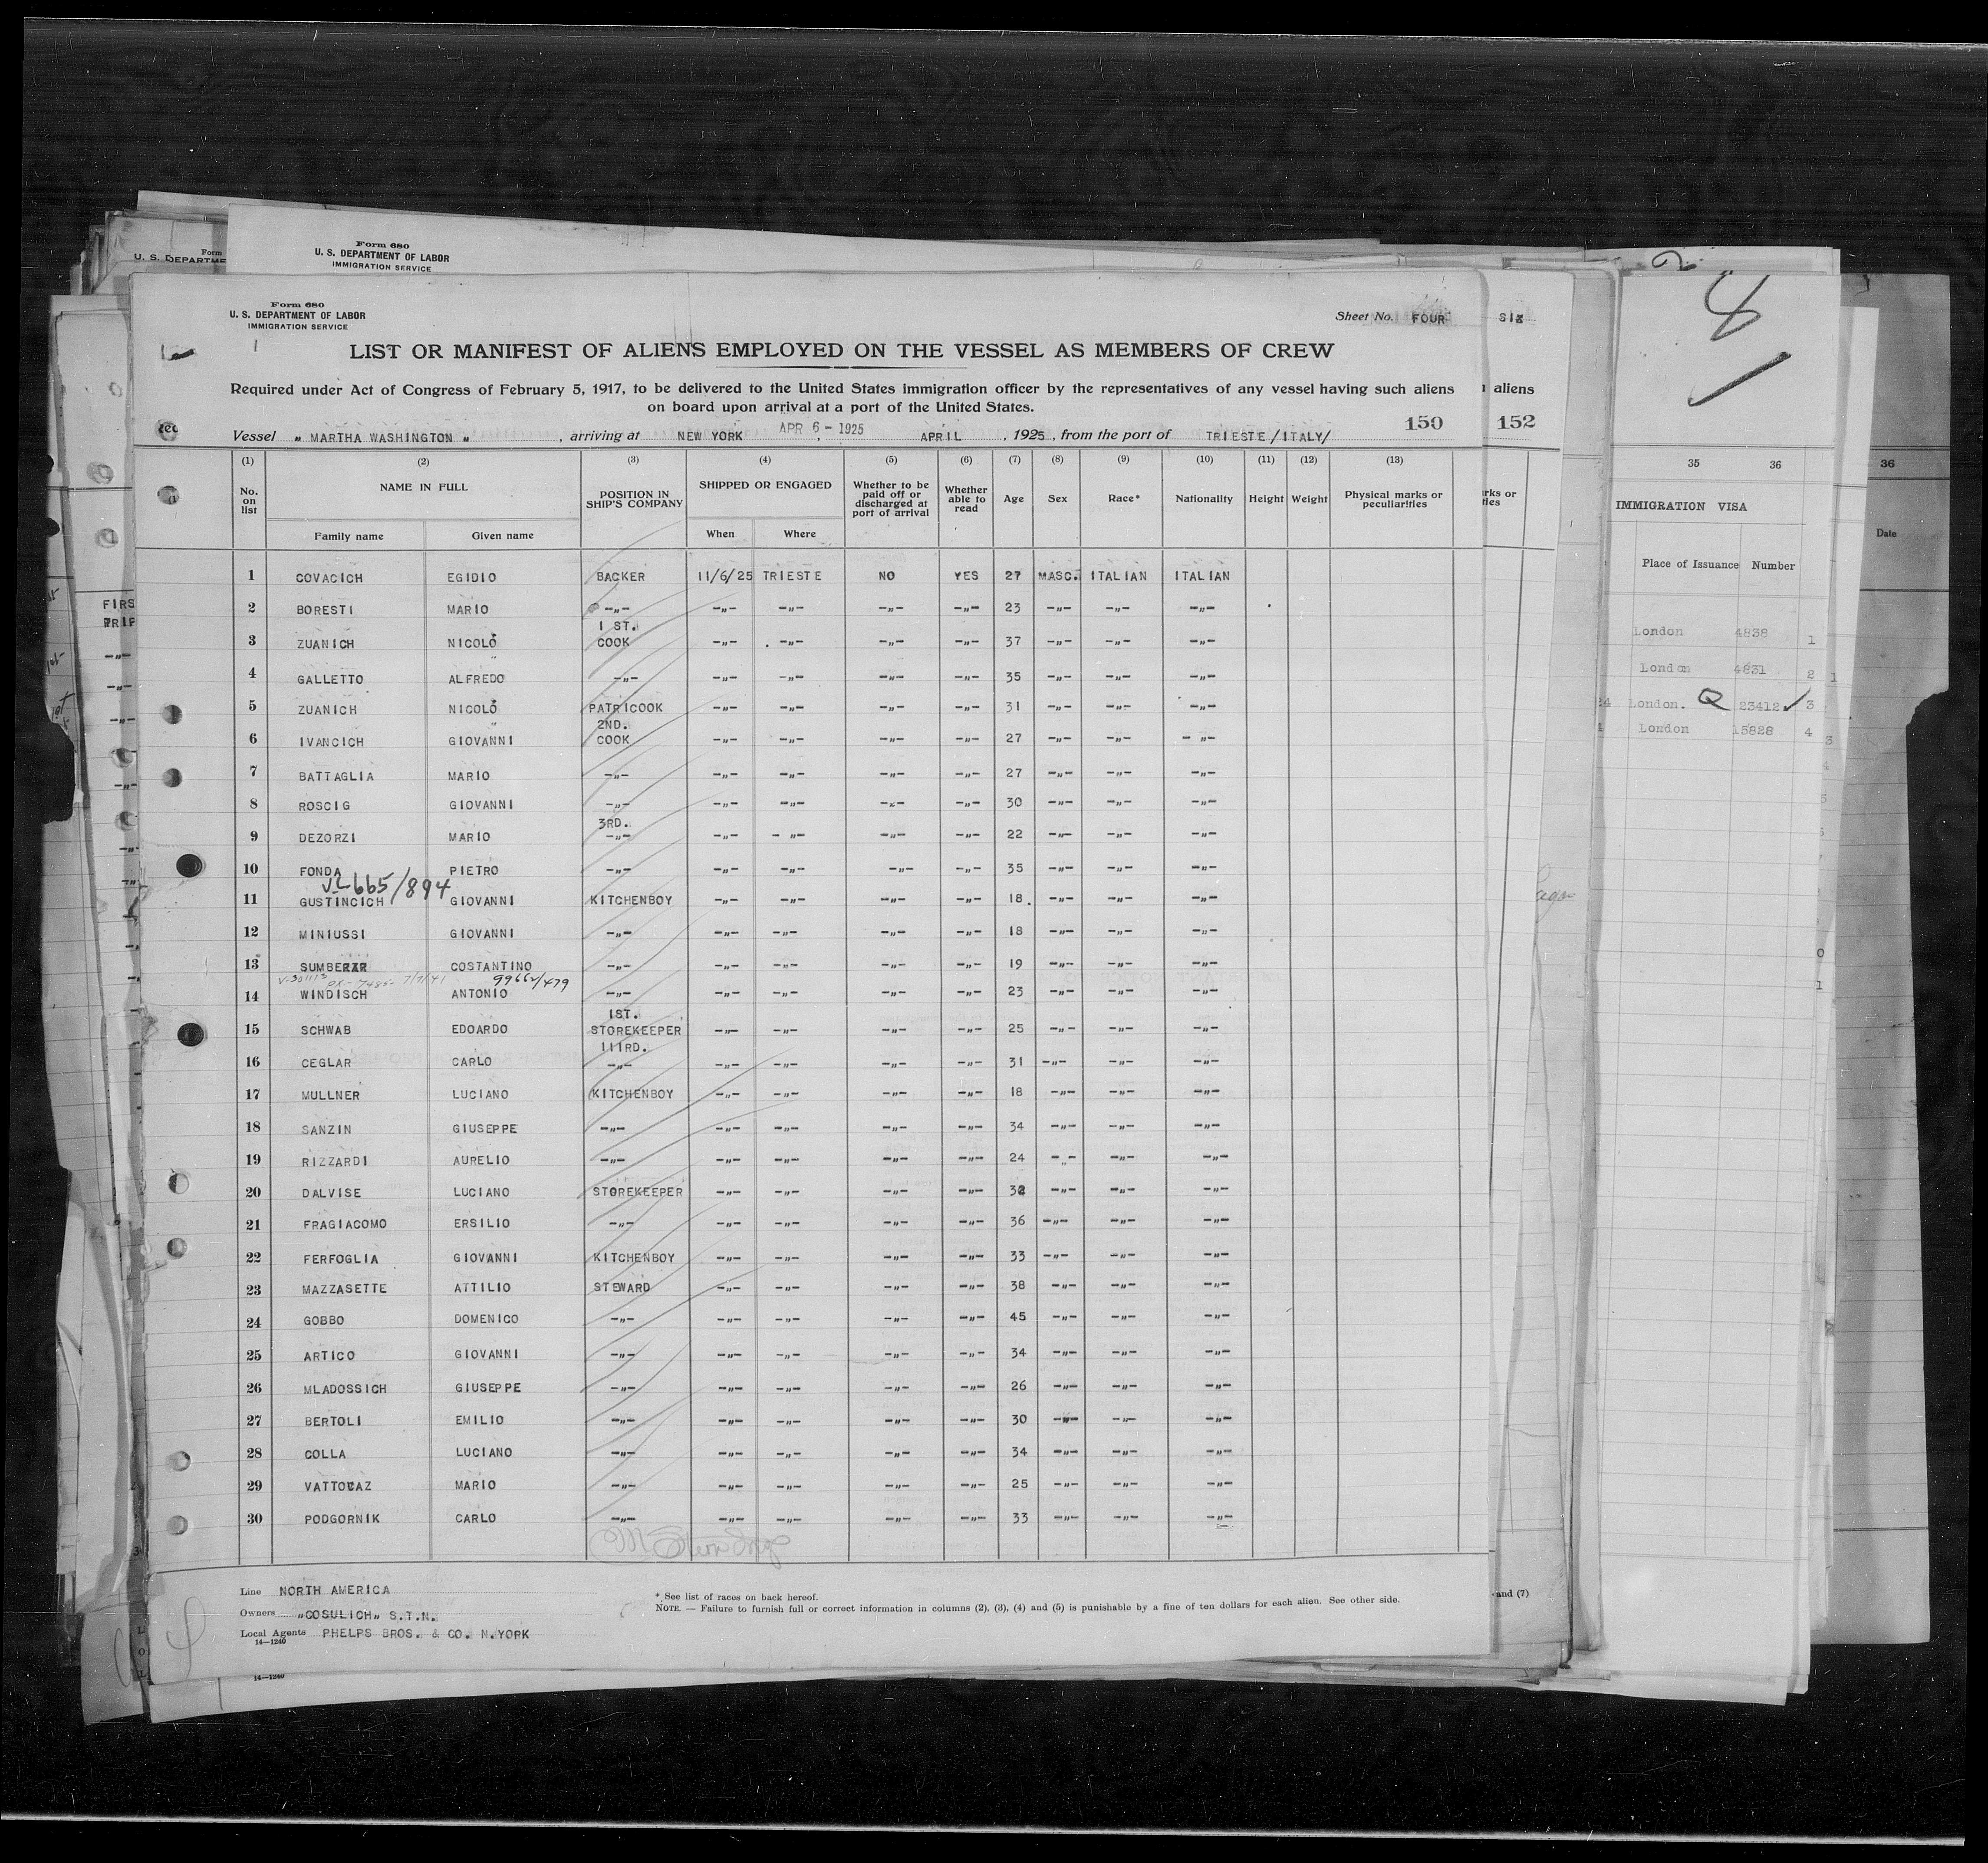 Form 680
U. S. DEPARTMENT OF LABOR
IMMIGRATION SERVICE
Form
U. S. DEPARTME
Form 680
U. S. DEPARTMENT OF LABOR
IMMIGRATION SERVICE
Sheet No. FOUR
SIX
LIST OR MANIFEST OF ALIENS EMPLOYED ON THE VESSEL AS MEMBERS OF CREW
Required under Act of Congress of February 5, 1917, to be delivered to the United States immigration officer by the representatives of any vessel having such aliens
on board upon arrival at a port of the United States.
aliens
150
152
Vessel „ MARTHA WASHINGTON „ , arriving at NEW YORK APR 6 - 1925 , APRIL , 1925 , from the port of TRIESTE /ITALY/
(1) (2) (3) (4) (5) (6) (7) (8) (9) (10) (11) (12) (13)
No. on list NAME IN FULL Family name Given name POSITION IN SHIP'S COMPANY SHIPPED OR ENGAGED When Where Whether to be paid off or discharged at port of arrival Whether able to read Age Sex Race* Nationality Height Weight Physical marks or peculiarities
1 COVACICH EGIDIO BACKER 11/6/25 TRIESTE NO YES 27 MASC. ITALIAN ITALIAN
2 BORESTI MARIO -„- -„- -„- -„- -„- 23 -„- -„- -„-
3 ZUANICH NICOLÓ 1 ST. COOK -„- -„- -„- -„- 37 -„- -„- -„-
4 GALLETTO ALFREDO -„- -„- -„- -„- -„- 35 -„- -„- -„-
5 ZUANICH NICOLÓ PATRICOOK -„- -„- -„- -„- 31 -„- -„- -„-
6 IVANCICH GIOVANNI 2ND. COOK -„- -„- -„- -„- 27 -„- -„- -„-
7 BATTAGLIA MARIO -„- -„- -„- -„- -„- 27 -„- -„- -„-
8 ROSCIG GIOVANNI -„- -„- -„- -„- -„- 30 -„- -„- -„-
9 DEZORZI MARIO 3RD. -„- -„- -„- -„- -„- 22 -„- -„- -„-
10 FONDA PIETRO -„- -„- -„- -„- -„- 35 -„- -„- -„-
VL665/894
11 GUSTINCICH GIOVANNI KITCHENBOY -„- -„- -„- -„- 18. -„- -„- -„-
12 MINIUSSI GIOVANNI -„- -„- -„- -„- -„- 18 -„- -„- -„-
13 SUMBERAR COSTANTINO -„- -„- -„- -„- -„- 19 -„- -„- -„-
7/7/41 99662/479
14 WINDISCH ANTONIO -„- -„- -„- -„- -„- 23 -„- -„- -„-
15 SCHWAB EDOARDO 1ST. STOREKEEPER -„- -„- -„- -„- 25 -„- -„- -„-
16 CEGLAR CARLO 111RD. -„- -„- -„- -„- -„- 31 -„- -„- -„-
17 MULLNER LUCIANO KITCHENBOY -„- -„- -„- -„- 18 -„- -„- -„-
18 SANZIN GIUSEPPE -„- -„- -„- -„- -„- 34 -„- -„- -„-
19 RIZZARDI AURELIO -„- -„- -„- -„- -„- 24 -„- -„- -„-
20 DALVISE LUCIANO STOREKEEPER -„- -„- -„- -„- 32 -„- -„- -„-
21 FRAGIACOMO ERSILIO -„- -„- -„- -„- -„- 36 -„- -„- -„-
22 FERFOGLIA GIOVANNI KITCHENBOY -„- -„- -„- -„- 33 -„- -„- -„-
23 MAZZASETTE ATTILIO STEWARD -„- -„- -„- -„- 38 -„- -„- -„-
24 GOBBO DOMENICO -„- -„- -„- -„- -„- 45 -„- -„- -„-
25 ARTICO GIOVANNI -„- -„- -„- -„- -„- 34 -„- -„- -„-
26 MLADOSSICH GIUSEPPE -„- -„- -„- -„- -„- 26 -„- -„- -„-
27 BERTOLI EMILIO -„- -„- -„- -„- -„- 30 -„- -„- -„-
28 COLLA LUCIANO -„- -„- -„- -„- -„- 34 -„- -„- -„-
29 VATTOVAZ MARIO -„- -„- -„- -„- -„- 25 -„- -„- -„-
30 PODGORNIK CARLO -„- -„- -„- -„- -„- 33 -„- -„- -„-
Line NORTH AMERICA
Owners „COSULICH„ S.T.N.
Local Agents PHELPS BROS. & CO. N.YORK
14—1240
* See list of races on back hereof.
NOTE. — Failure to furnish full or correct information in columns (2), (3), (4) and (5) is punishable by a fine of ten dollars for each alien. See other side.
and (7)
14—1240
35 36
IMMIGRATION VISA
Place of Issuance Number
London 4838 1
London 4831 2
London. Q 23412 ✓ 3
London 15828 4
36
Date